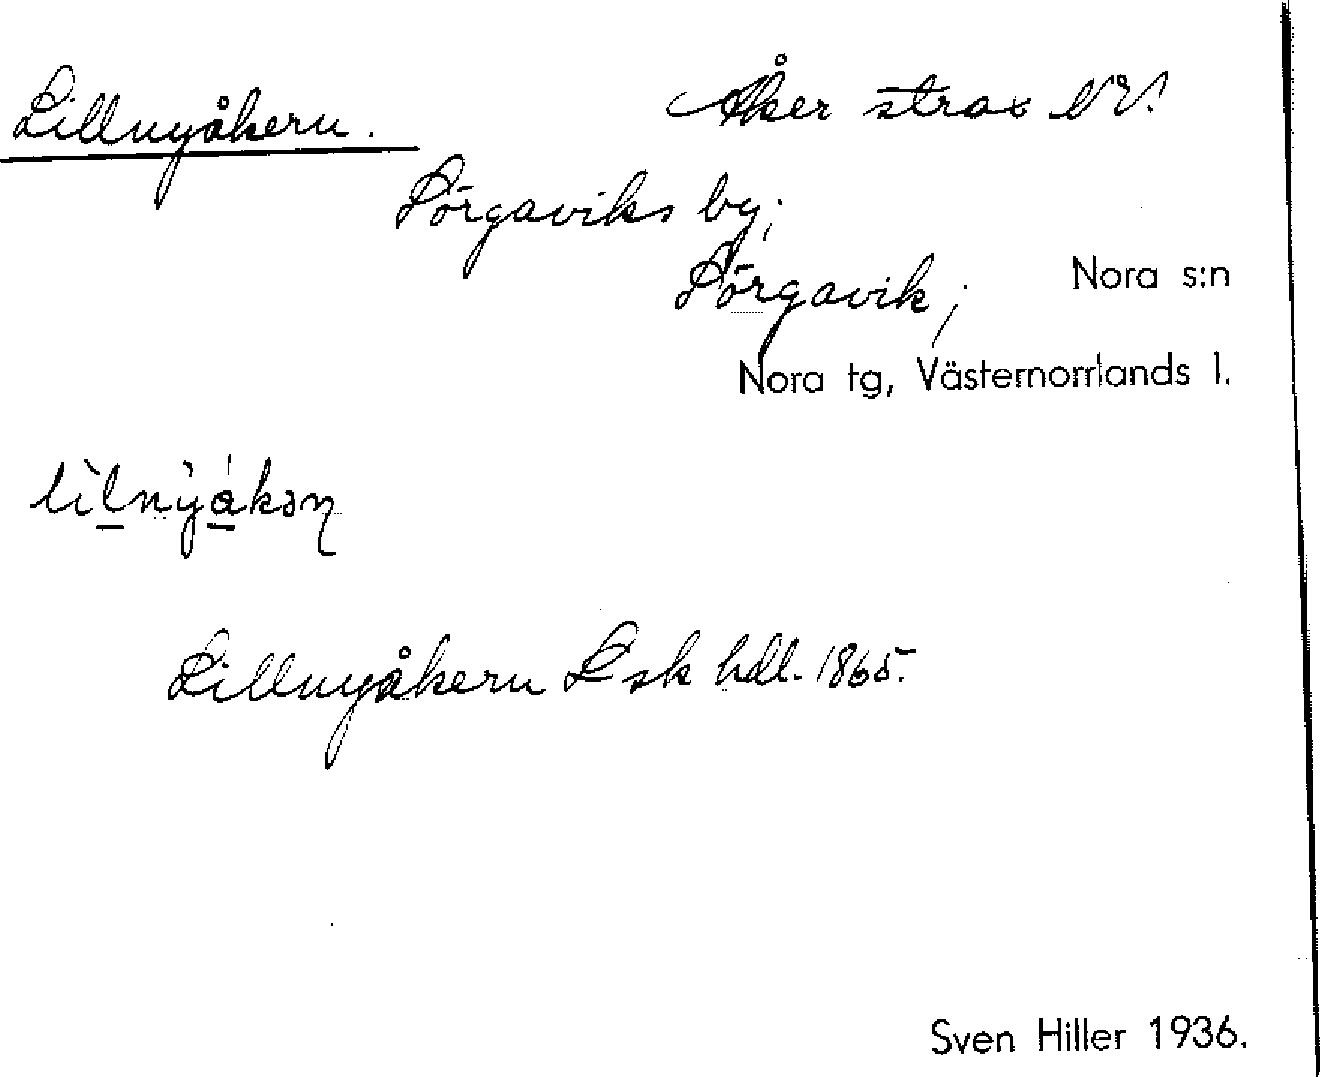 Lillnyåkern. Åker strax NV.
Sörgaviks by;
Sörgavik; Nora s:n
Nora tg, Västernorrlands l.
Lillnyåkern Lsk hdl. 1865.
Sven Hiller 1936.